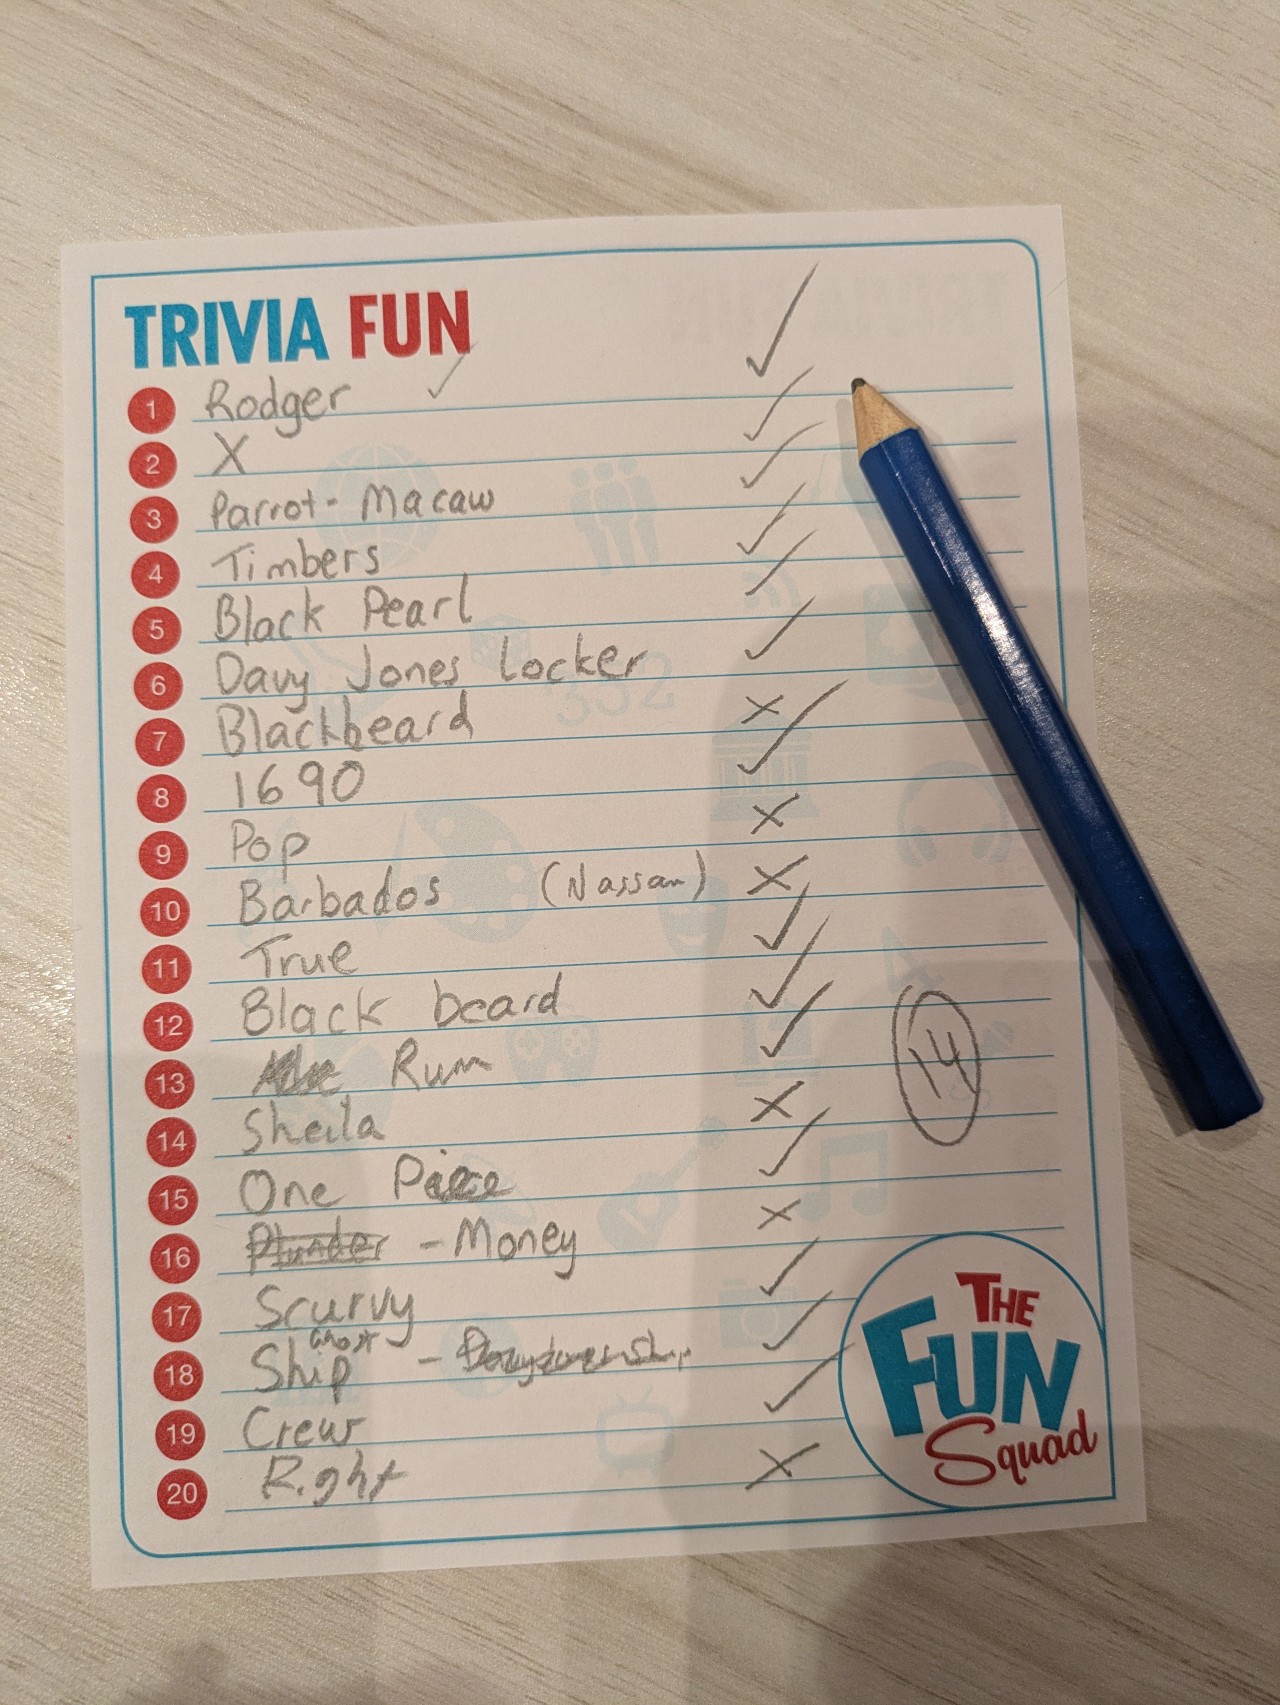 TRIVIA FUN
1 Rodger
2 X
3 Parrot - Macaw
4 Timbers
5 Black Pearl
6 Davy Jones Locker
7 Blackbeard
8 1690
9 Pop
10 Barbados (Nassau)
11 True
12 Black beard
13 Rum
14 Sheila
15 One Piece
16 Plunder - Money
17 Scurvy
18 Ghost Ship -
19 Crew
20 Right
14
THE
FUN
Squad